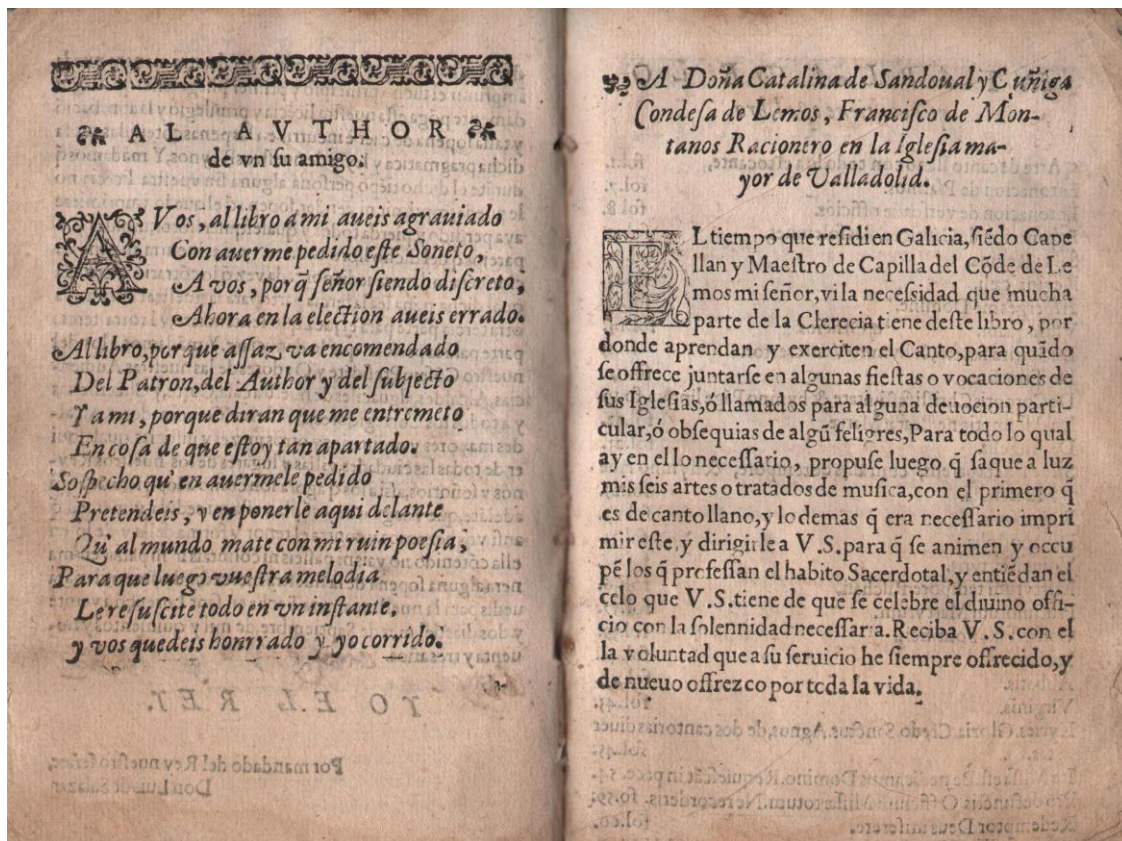 AL AVTHOR
de vn su amigo.
A Vos, al libro à mi aueis agrauiado
Con auerme pedido este Soneto,
A vos, por q̃ señor siendo discreto,
Ahora en la election aueis errado.
Al libro, por que assaz va encomendado
Del Patron, del Author y del subjecto
Y a mi, porque diran que me entremeto
En cosa de que estoy tan apartado.
Sospecho qu' en auermele pedido
Pretendeis, y en ponerle aqui delante
Qu' al mundo mate con mi ruin poesia,
Para que luego vuestra melodia
Le resuscite todo en vn instante,
y vos quedeis honrrado y yo corrido.
YO EL REI.
Por mandado del Rey nuestro señor,
Don Luis de Salazar
A Doña Catalina de Sandoual y Cuñiga
Condesa de Lemos, Francisco de Mon-
tanos Racionero en la Iglesia ma-
yor de Valladolid.
EL tiempo que residi en Galicia, siẽdo Cape
llan y Maestro de Capilla del Cõde de Le
mos mi señor, vi la necessidad que mucha
parte de la Clerecia tiene deste libro, por
donde aprendan y exerciten el Canto, para quãdo
se offrece juntarse en algunas fiestas o vocaciones de
sus Iglesias, ò llamados para alguna deuocion parti-
cular, ò obsequias de algũ feligres, Para todo lo qual
ay en el lo necessario, propuse luego q̃ saque a luz
mis seis artes o tratados de musica, con el primero q̃
es de canto llano, y lo demas q̃ era necessario impri
mir este, y dirigirle a V.S. para q̃ se animen y occu
pẽ los q̃ professan el habito Sacerdotal, y entiẽdan el
celo que V.S. tiene de que se celebre el diuino offi-
cio con la solennidad necessaria. Reciba V.S. con el
la voluntad que a su seruicio he siempre offrecido, y
de nueuo offrezco por toda la vida.